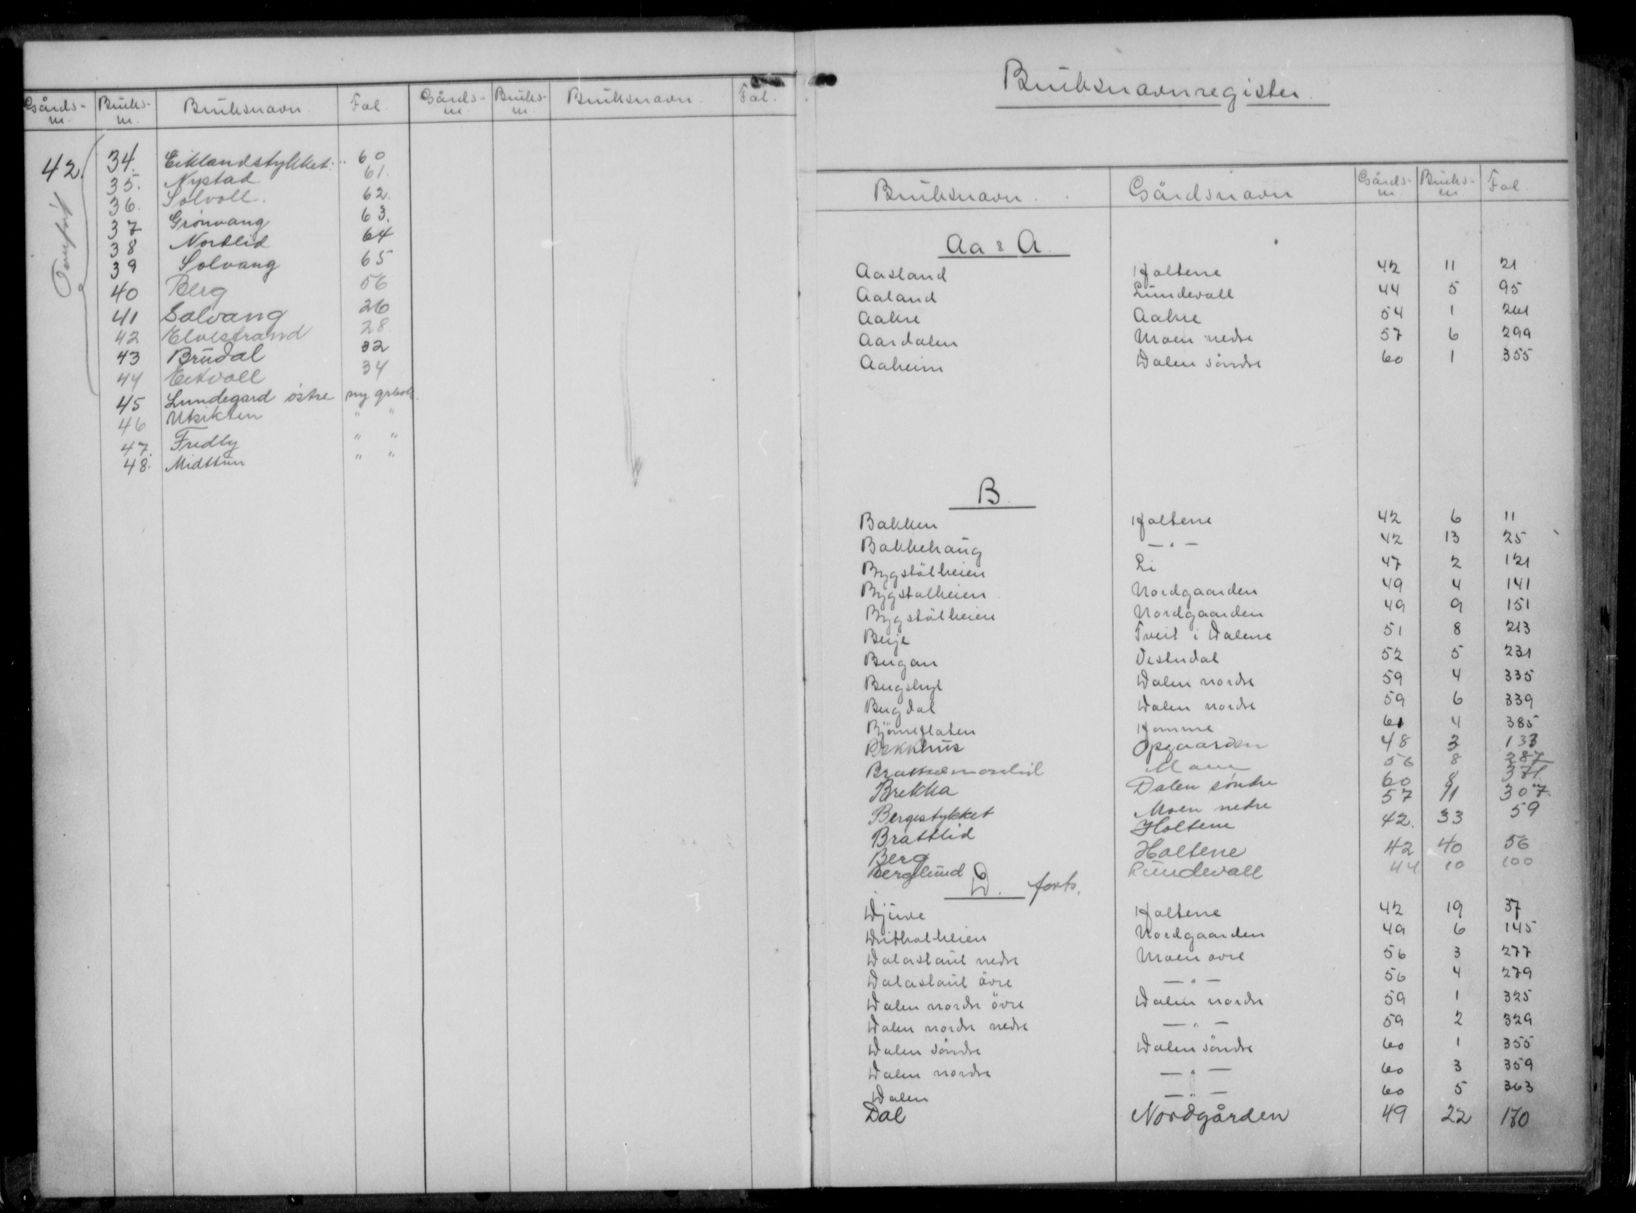 Gårds- nr. Bruks- nr. Bruksnavn. Fol. Gårds- nr. Bruks- nr. Bruksnavn. Fol.
42. 34. Eiklandstykket. 60
35. Nystad 61.
36. Solvoll. 62.
37 Grønvang 63.
38 Nortlid 64
39 Solvang 65
40 Berg 56
41 Solvang 26
42 Elvestrand 28.
43 Brudal 32
44 Eikvoll 34
45 Lundegard østre ny grbok
46 Utsikten " "
47. Fredly " "
48. Midttun " "
Bruksnavnregister.
Bruksnavn. Gårdsnavn Gårds- nr. Bruks- nr. Fol.
Aa & A.
Aasland Holtene 42 11 21
Aaland Lundevall 44 5 95
Aakre Aakre 54 1 261
Aardalen Moen nedre 57 6 299
Aaheim Dalen söndre 60 1 355
B.
Bakken Holtene 42 6 11
Bakkehaug — " — 42 13 25
Bygstölheien Li 47 2 121
Bygstølheien. Nordgaarden 49 4 141
Bygstölheien Nordgaarden 49 9 151
Berje Tveit i Dalene 51 8 213
Bergan Vesterdal 52 5 231
Dalen nordre 59 4 335
Bergdal Dalen nordre 59 6 339
Björneflaten Homme 61 4 385
Bekkhus Opgaarden 48 3 133
56 8 287
Brekka Dalen søndre 60 8 371.
Bergestykket Moen nedre 57 11 307.
Brattlid Holtene 42. 33 59
Berg Holtene 42 40 56
Berglund Lundevall 44 10 100
D. forts.
Djuve Holtene 42 19 37
Nordgaarden 49 6 145
Dalastaul nedre Moen övre 56 3 277
Dalastaul övre — " — 56 4 279
Dalen nordre övre Dalen nordre 59 1 325
Dalen nordre nedre — " — 59 2 329
Dalen söndre Dalen söndre 60 1 355
Dalen nordre — " — 60 3 359
Dalen — " — 60 5 363
Dal Nordgården 49 22 170